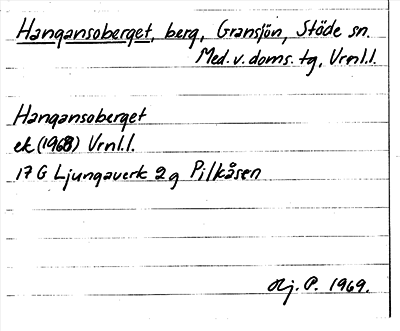 Hangansoberget, berg, Gransjön, Stöde sn.
Med. v. doms. tg, Vrnl.l.
Hangansoberget
ek (1968) Vrnl.l.
17 G Ljungaverk 2 g Pilkåsen
Hj. P. 1969.